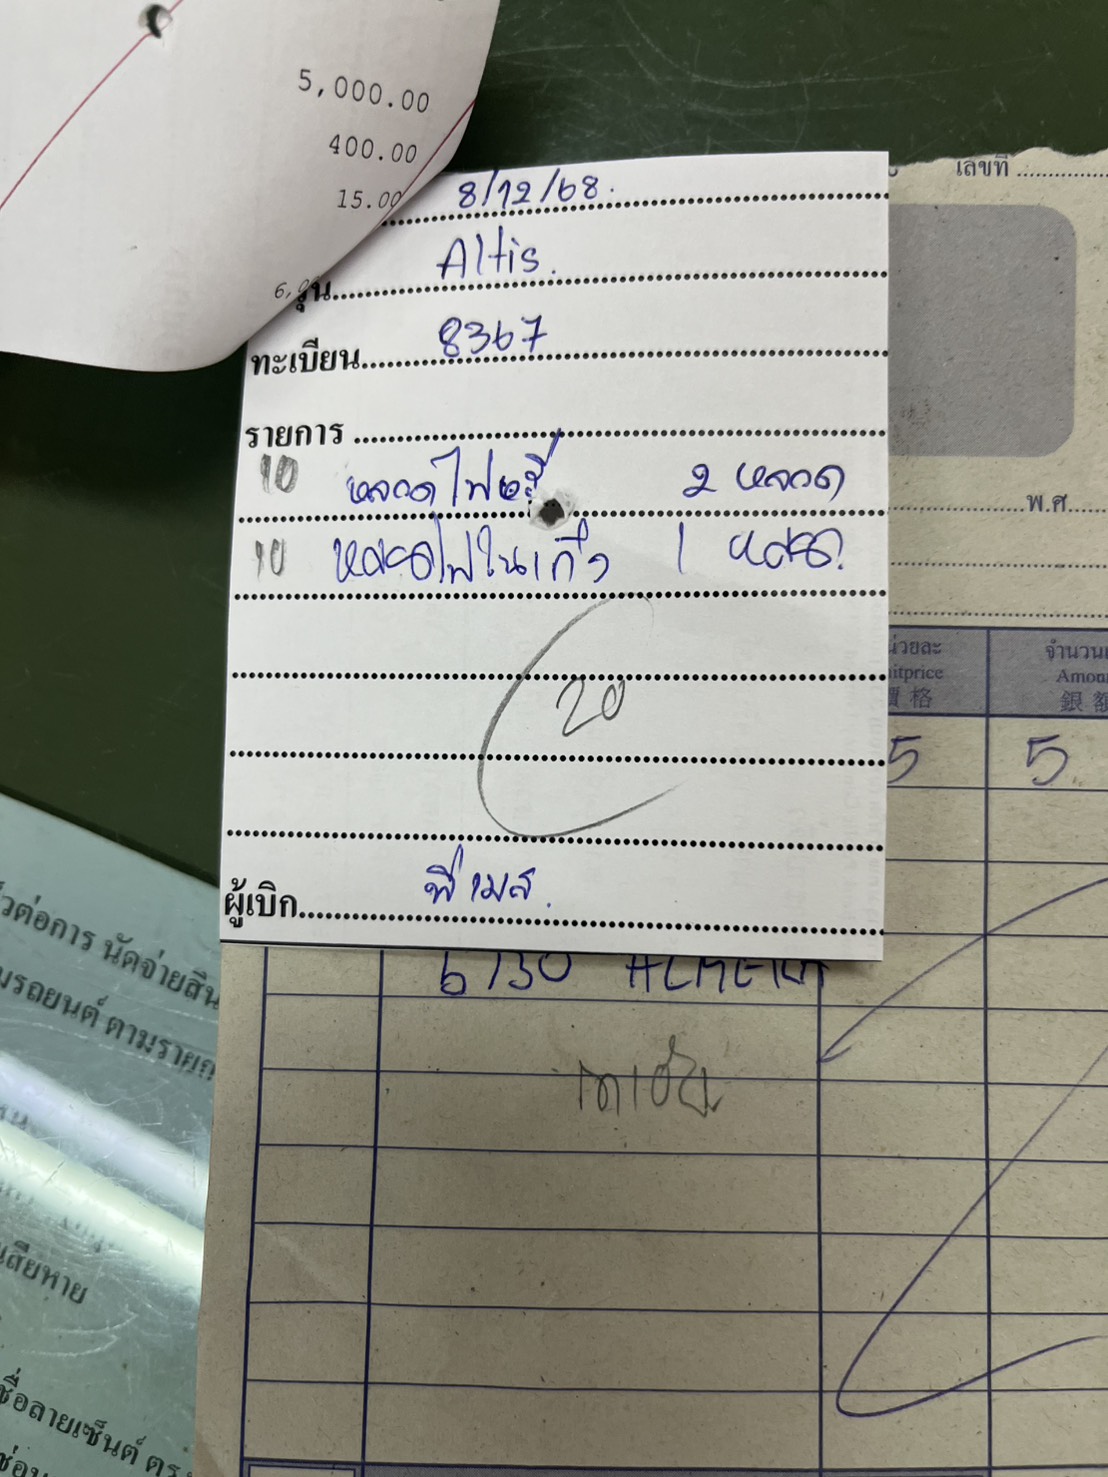 5,000.00
400.00
15.00
6,
เลขที่
8/12/68.
รุ่น Altis.
ทะเบียน 8367
รายการ
10 หลอดไฟหรี่ 2 หลอด
พ.ศ.
10 หลอดไฟในเก๋ง 1 หลอด.
20
น่วยละ
จำนวนเ
nitprice
Amoun
價格
銀額
5 5
ผู้เบิก พี่เมส.
6130 ALMERA
วต่อการ นัดจ่ายสิน
มรถยนต์ ตามรายก
เสียหาย
ชื่อลายเซ็นต์ ตร
ซ่อม